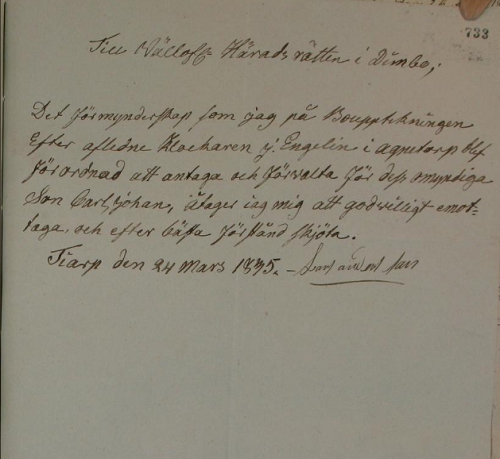 733
Till Vällofl. Härads rätten i Dimbo,
Det förmynderskap som jag på Boupptekningen
Efter afledne Klockaren J. Engelin i agnetorp blf
förordnad att antaga och förvalta för dess omyndiga
Son Carl Johan, åtager jag mig att godvilligt emot-
taga, och efter bästa förstånd skjöta.
Tiarp den 24 Mars 1835.